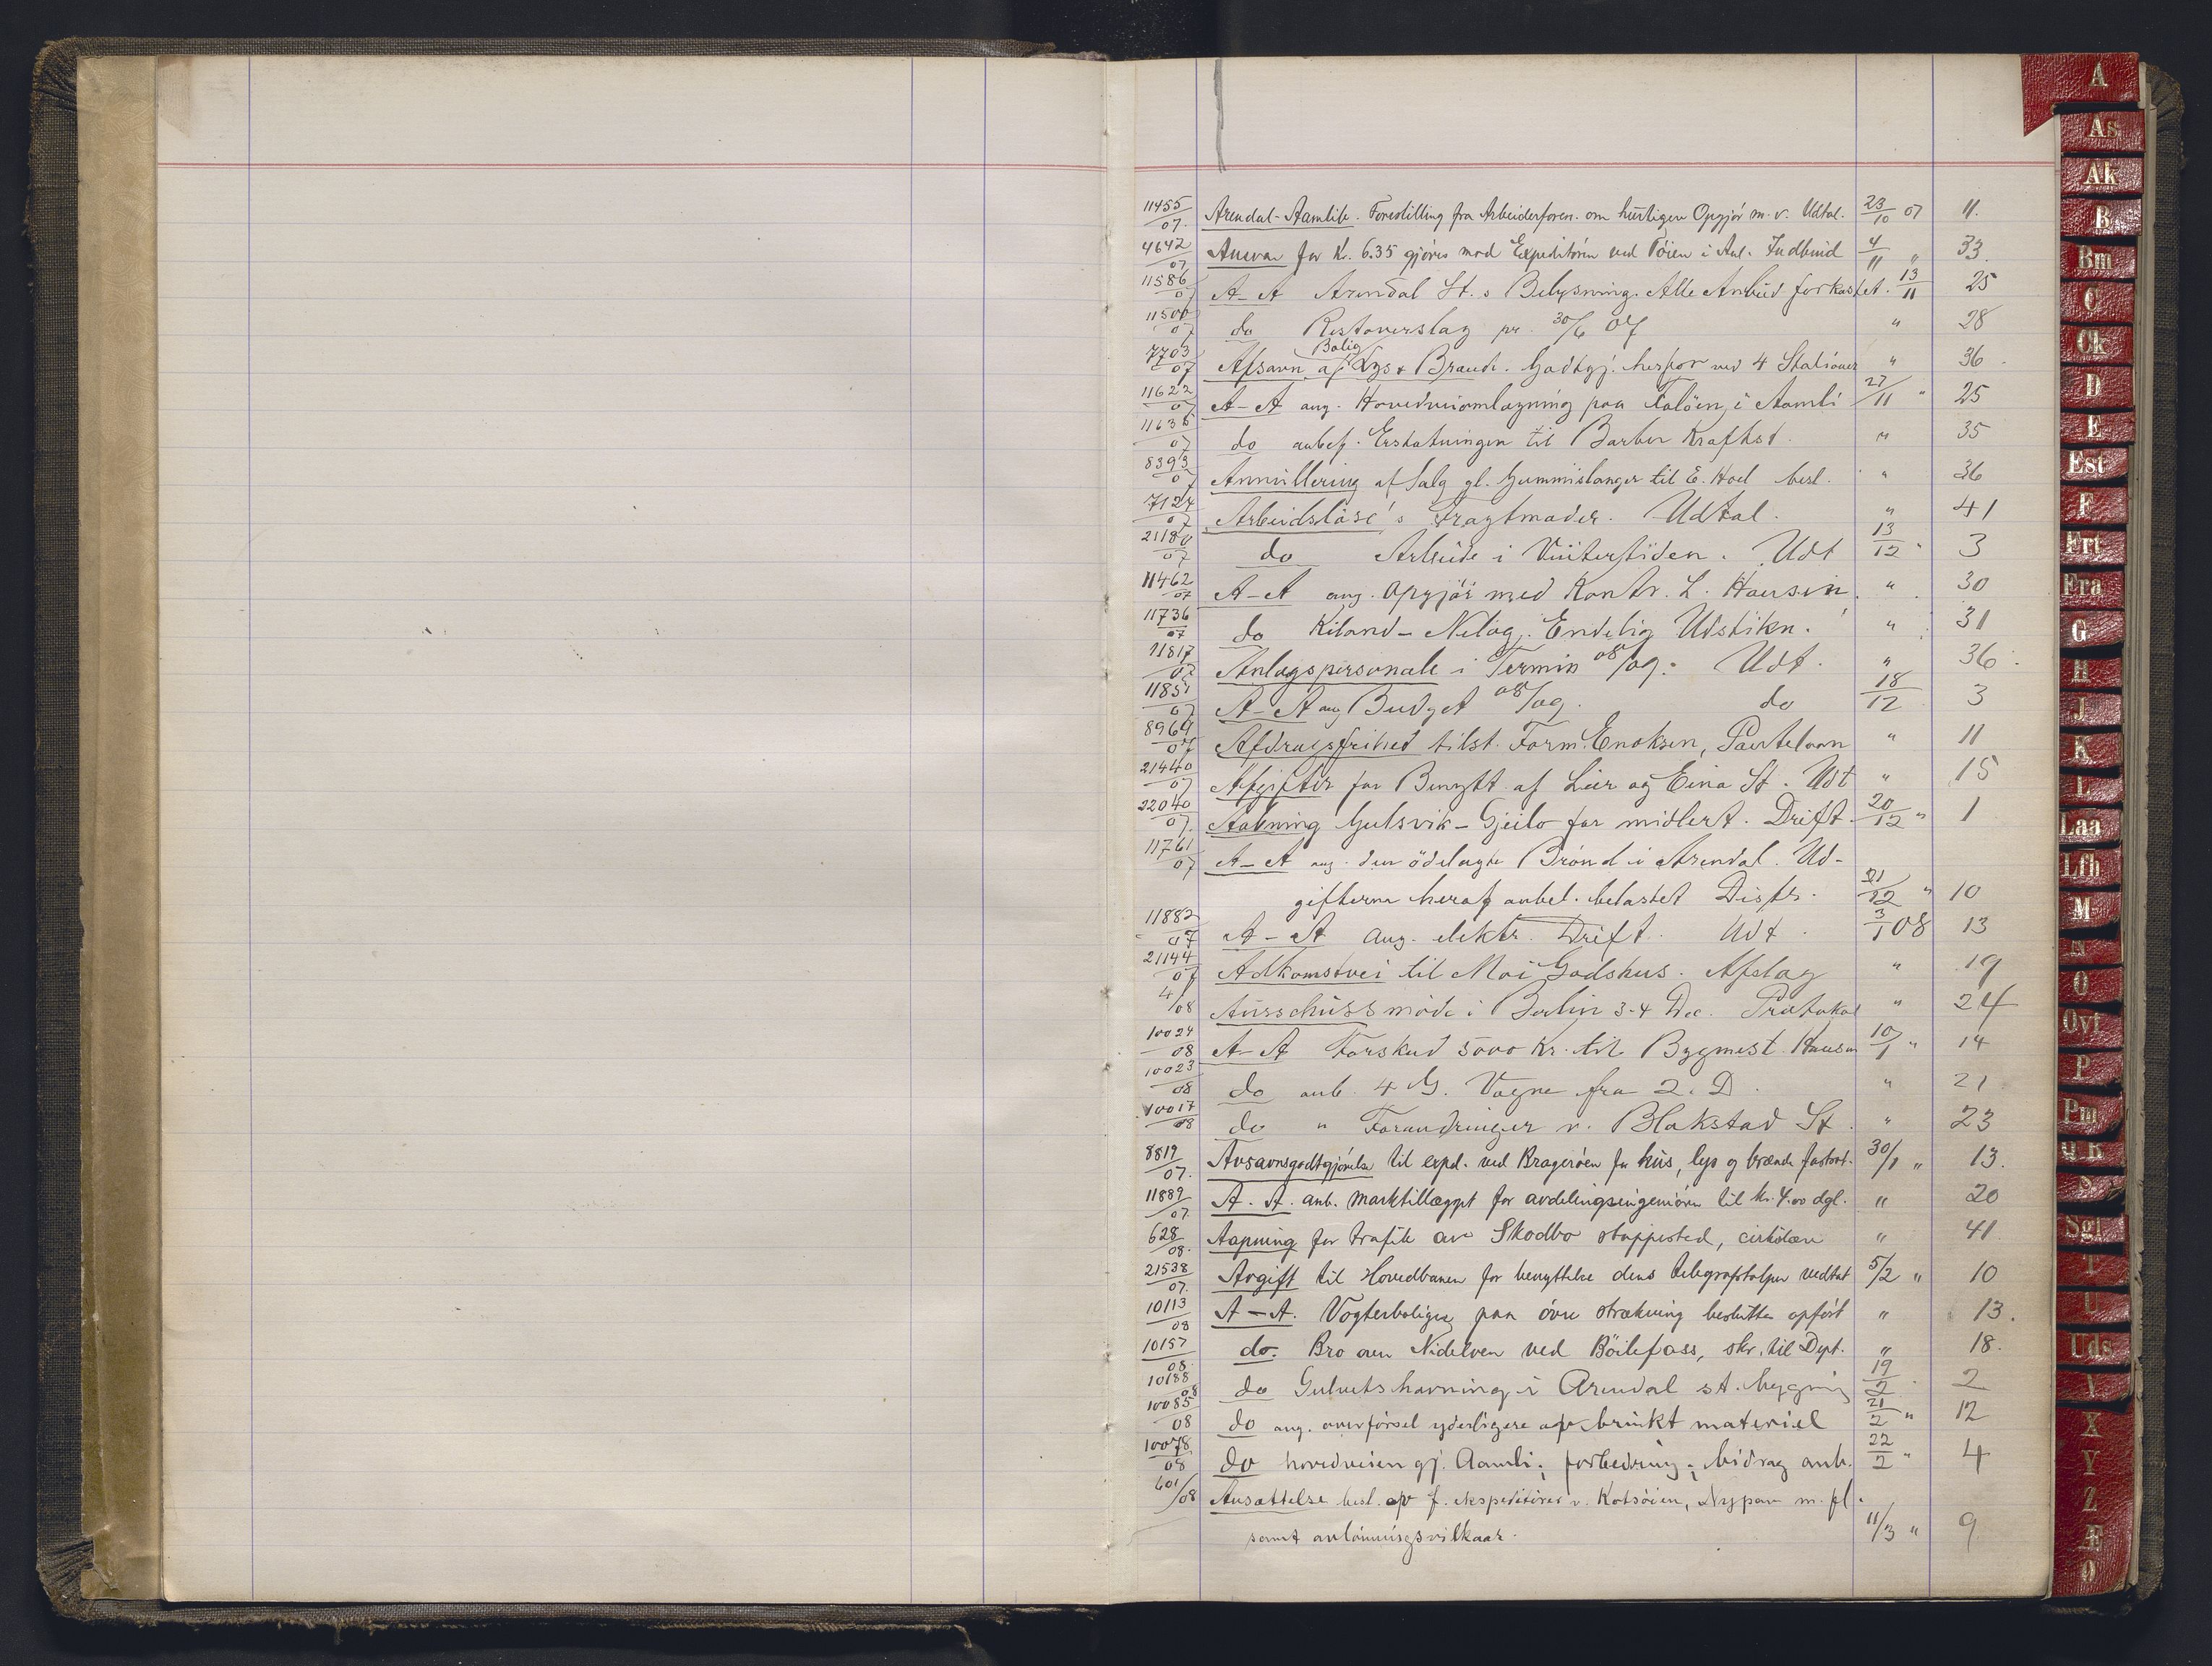 11455/07. Arendal-Aamlib. Forestilling fra Arbeiderforen. om hurtigere Opgjör m. v. Udtal. 23/10 07 11.
4642/07 Ansvar for Kr. 6.35 gjöres mod Expeditören ved Töien i Anl. Indbud 4/11 " 33.
11586/07 A-A Arendal St.s Belysning. Alle Anbud forkastet. 13/11 25
11500/07 do Restoverslag pr. 30/6 07 " 28
Bolig
7703/07 Afsavn af Lys & Brænde. Godtgj. herfor ved 4 Stationer " 36.
11622/07 A-A ang. Hovedveiomlægning paa i Aamli 27/11 " 25
11636/07 do anbef. Erstatningen til Barbu Kraftst. " 35
8393/07 Annullering af Salg gl. Gummislanger til E. Hoel besl. " 36
7127/07 Arbeidslöse's Fragtmoder. Udtal. " 41
21180/07 do Arbeide i Vintertiden. Udt 13/12 " 3
11462/07 A-A ang. Opgjör med Kontr. L. Hansen. " 30
11736/07 do Kiland-Nelag. Endelig Udstikn. " 31
11817/07 Anlægspersonale i Termin 08/09. Udt. " 36.
11851/07 A-A ang Budget 08/09. do 18/12 3
8969/07 Afdragsfrihed tilst. Form. Enoksen, Pantelaan " 11
21440/07 Afgifter for Benytt. af Lier og Eina St. Udt " 15
22040/07. Aabning Gulsvik-Gjeilo for midlert. Drift. 20/12 " 1
11761/07 A-A ang. den ödelagte Brönd i Arendal. Ud-
gifterne heraf anbef. belastet Distr. 21/12 " 10
11882/07 A-A ang. elektr. Drift. Udt. 3/1 08 13
21144/07 Adkomstvei til Moi Godshus. Afslag " 19
4/08 Ausschussmöde i Berlin 3-4 Dec. Protokol " 24
10024/08 A-A Forskud 5000 Kr. til Bygmest. Hansen 10/1 " 14
10023/08 do anb. 4 G. Vogne fra 2. D. " 21
10017/08 do " Forandringer v. Blakstad St. " 23
8819/07. Avsavnsgodtgjörelse til exped. ved Kragerøen for hus, lys og brænde fastsat. 30/1 " 13.
11889/07. A. A. anb. marktillægget for avdelingsingeniören til kr. 4.00 dgl. " 20
628/08. Aapning for trafik av Skodbo stoppested, cirkulære " 41
21538/07. Avgift til Hovedbanen for benyttelse dens telegrafstolper vedtat 5/2 " 10
10113/08 A-A. Vogterboliger paa övre strækning besluttes opfört " 13.
10157/08. do. Bro over Nidelven ved Böilefoss, skr. til Dept. " 18.
10188/08 do Gulvets havning i Arendal st. bygning 19/2 2
10085/08 do ang. overförsel yderligere av brukt materiel 21/2 " 12
10078/08 do hovedveien gj. Aamli; forbedring; bidrag anb. 22/2 " 4
601/08 Ansættelse besl. av f. ekspeditörer v. Kotsöien, Nypan m. fl.
samt avlönningsvilkaar. 11/3 " 9
A
As
Ak
B
Bm
C
Ck
D
E
Est
F
Frt
Fra
G
H
J
K
L
Laa
Lfb
M
N
O
Ovf
P
Pm
Q R
S
Sgl
T
U
Uds
V
X
Y
Z
Æ
Ø